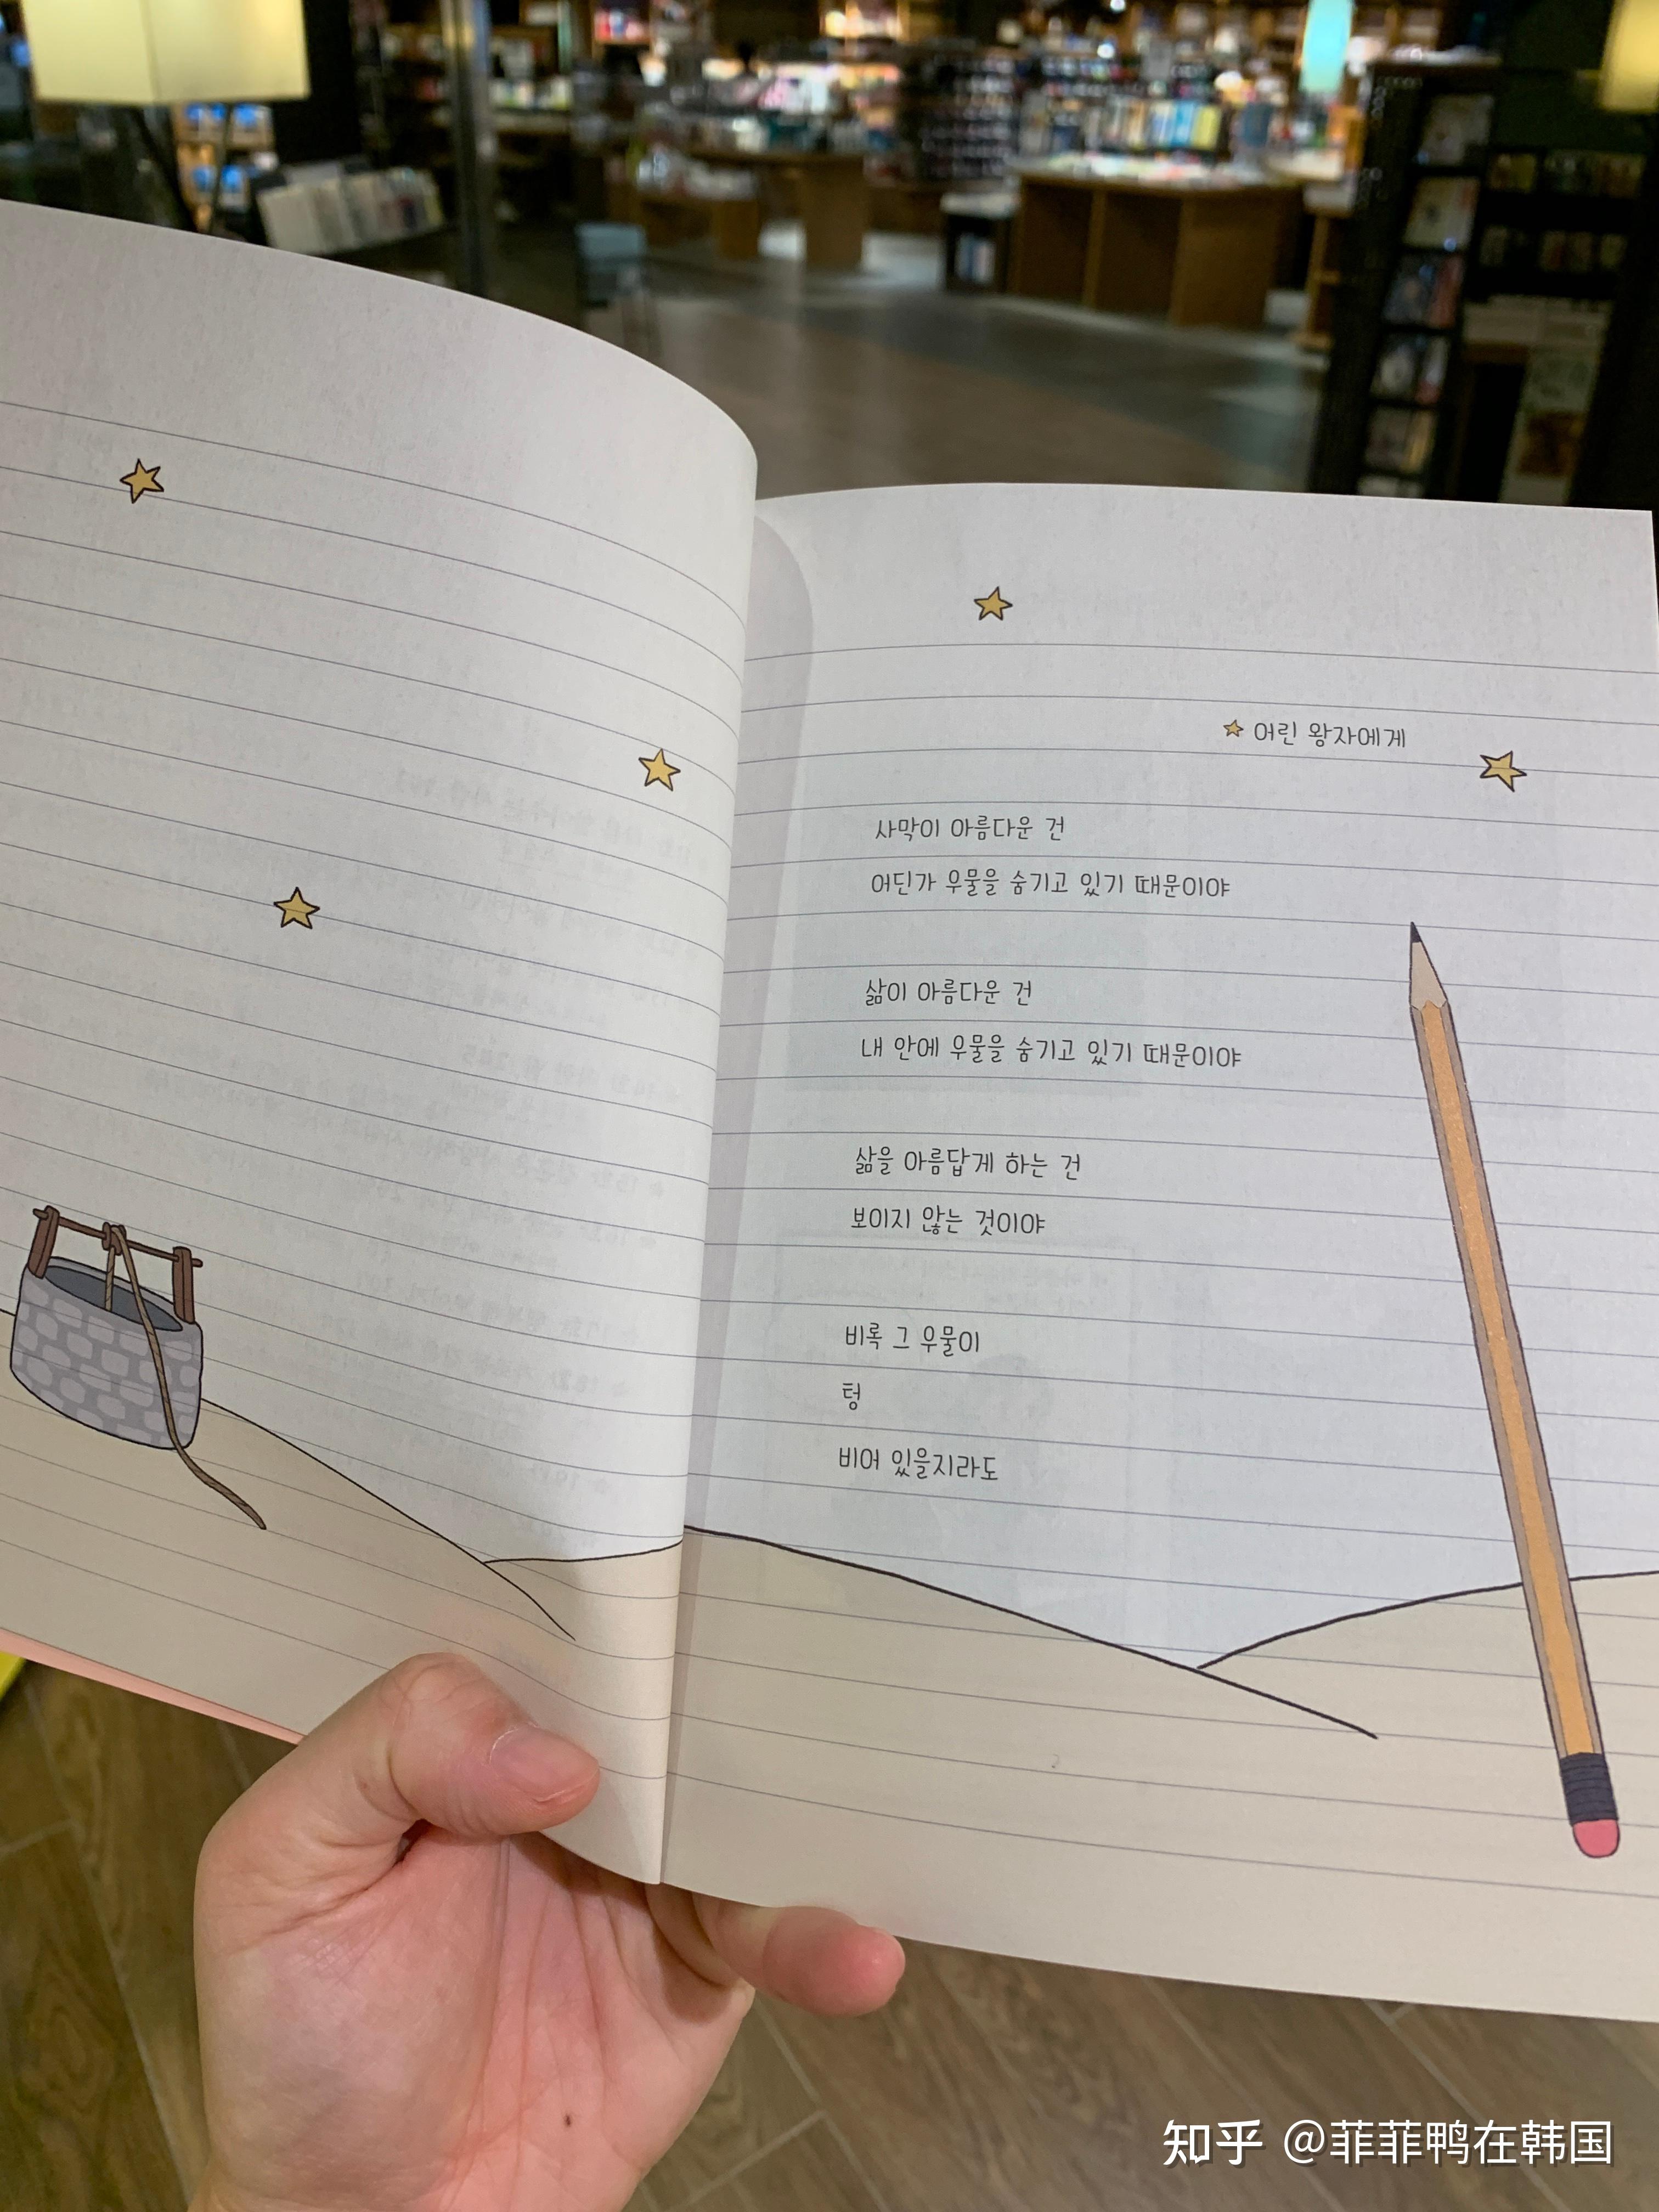 어린 왕자에게
사막이 아름다운 건
어딘가 우물을 숨기고 있기 때문이야
삶이 아름다운 건
내 안에 우물을 숨기고 있기 때문이야
삶을 아름답게 하는 건
보이지 않는 것이야
비록 그 우물이
텅
비어 있을지라도
知乎 @菲菲鸭在韩国